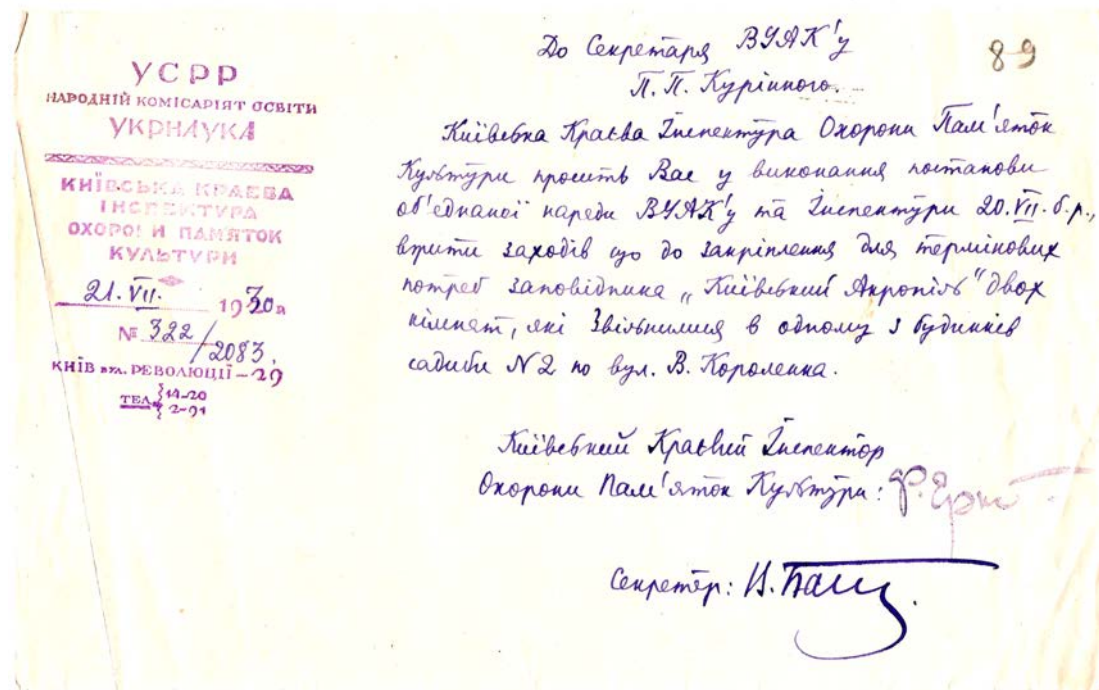 УСРР
НАРОДНІЙ КОМІСАРІЯТ ОСВІТИ
УКРНАУКА
КИЇВСЬКА КРАЄВА
ІНСПЕКТУРА
ОХОРОНИ ПАМЯТОК
КУЛЬТУРИ
21. VII. 1930 р
№ 322/2083.
КИЇВ вул. РЕВОЛЮЦІЇ – 29
ТЕЛ. 14-20
2-91
89
До Секретаря ВУАК'у
П. П. Курінного.
Київська Краєва Інспектура Охорони Пам'яток
Культури просить Вас у виконання постанови
об'єднаної наради ВУАК'у та Інспектури 20. VII. б.р.,
вжити заходів що до закріплення для термінових
потреб заповідника „Київський Акропіль" двох
кімнат, які звільнилися в одному з будинків
садиби N 2 по вул. В. Короленка.
Київський Краєвий Інспектор
Охорони Пам'яток Культури: Ф. Ернст
Секретар: